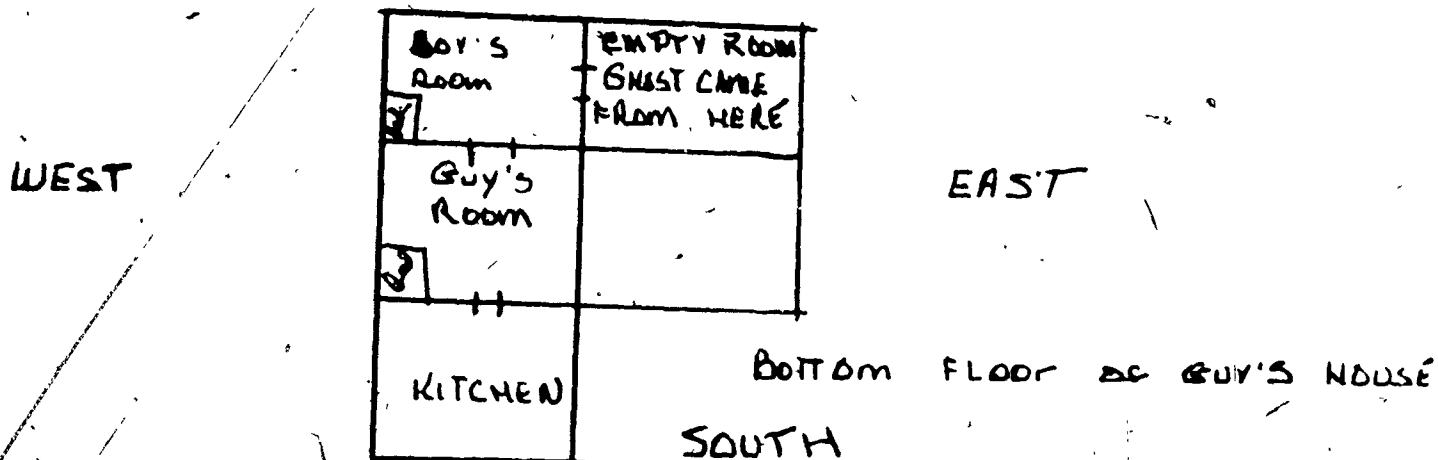 BOY'S
Room
EMPTY ROOM
GHOST CAME
FROM HERE
WEST
GUY'S
Room
EAST
KITCHEN
BOTTOM FLOOR OF GUY'S HOUSE
SOUTH